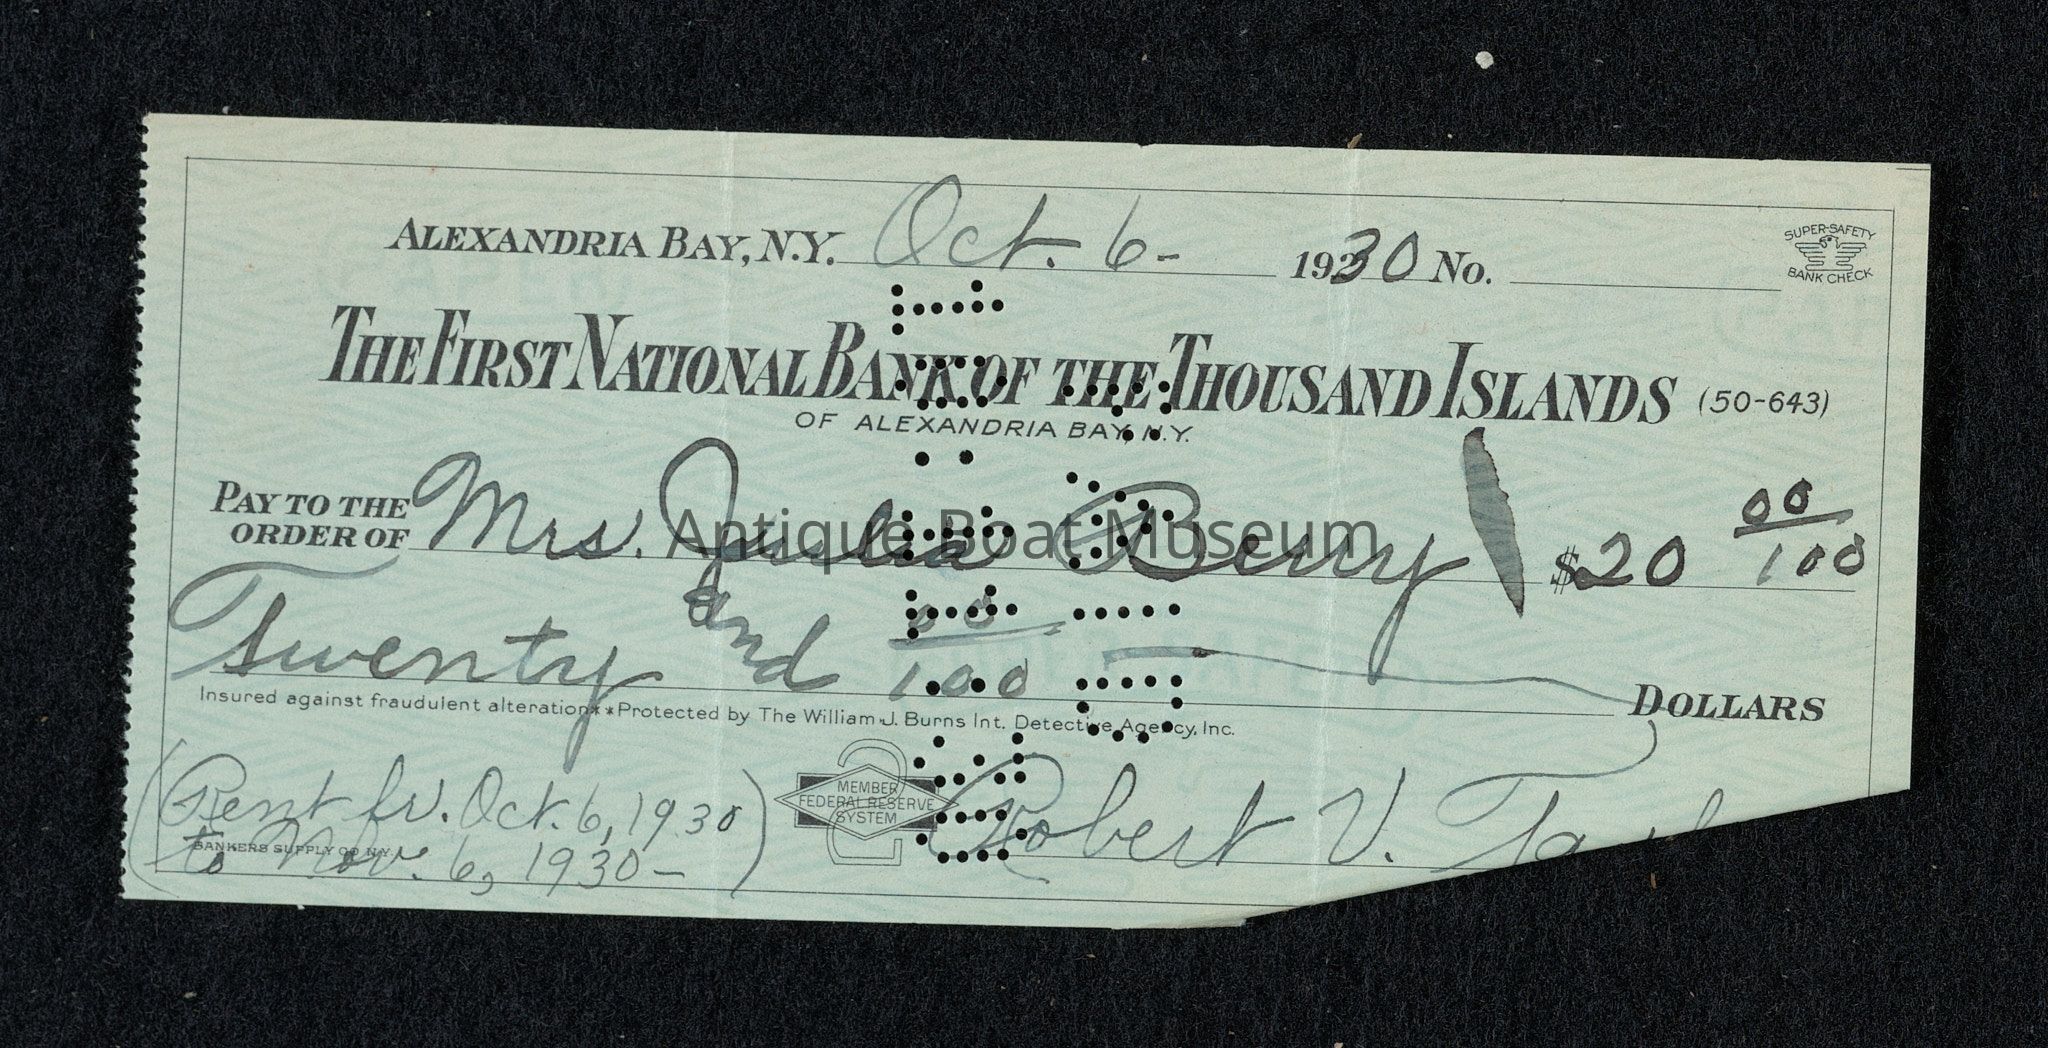 ALEXANDRIA BAY, N.Y. Oct. 6- 1930 No.
SUPER-SAFETY
BANK CHECK
THE FIRST NATIONAL BANK OF THE THOUSAND ISLANDS (50-643)
OF ALEXANDRIA BAY, N.Y.
PAY TO THE
ORDER OF Mrs. Julia Berry $20 00/100
Antique Boat Museum
Twenty and 00/100 DOLLARS
Insured against fraudulent alteration**Protected by The William J. Burns Int. Detective Agency, Inc.
(Rent fr. Oct. 6, 1930
to Nov. 6, 1930-)
BANKERS SUPPLY CO. N.Y.
MEMBER
FEDERAL RESERVE
SYSTEM
Robert V.